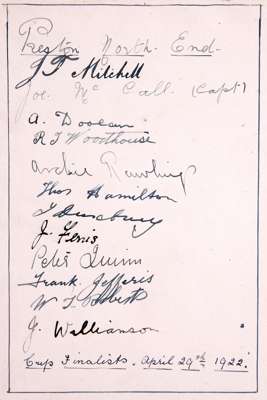 Preston North End -
J F Mitchell
Joe. Mc Call. (Capt)
A. Doolan
R T Woodhouse
Archie Rawlings
Thos Hamilton
T Duxbury
J. Ferris
Peter Quinn
Frank Jefferis
W T Roberts
J. Williamson
Cup Finalists. April 29th 1922.